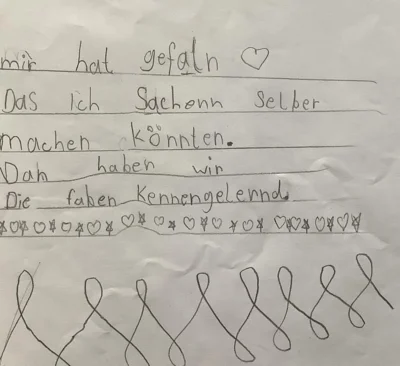 mir hat gefaln ♡
Das ich Sachenn Selber
machen könnten.
Dah haben wir
Die faben Kennengelernd.